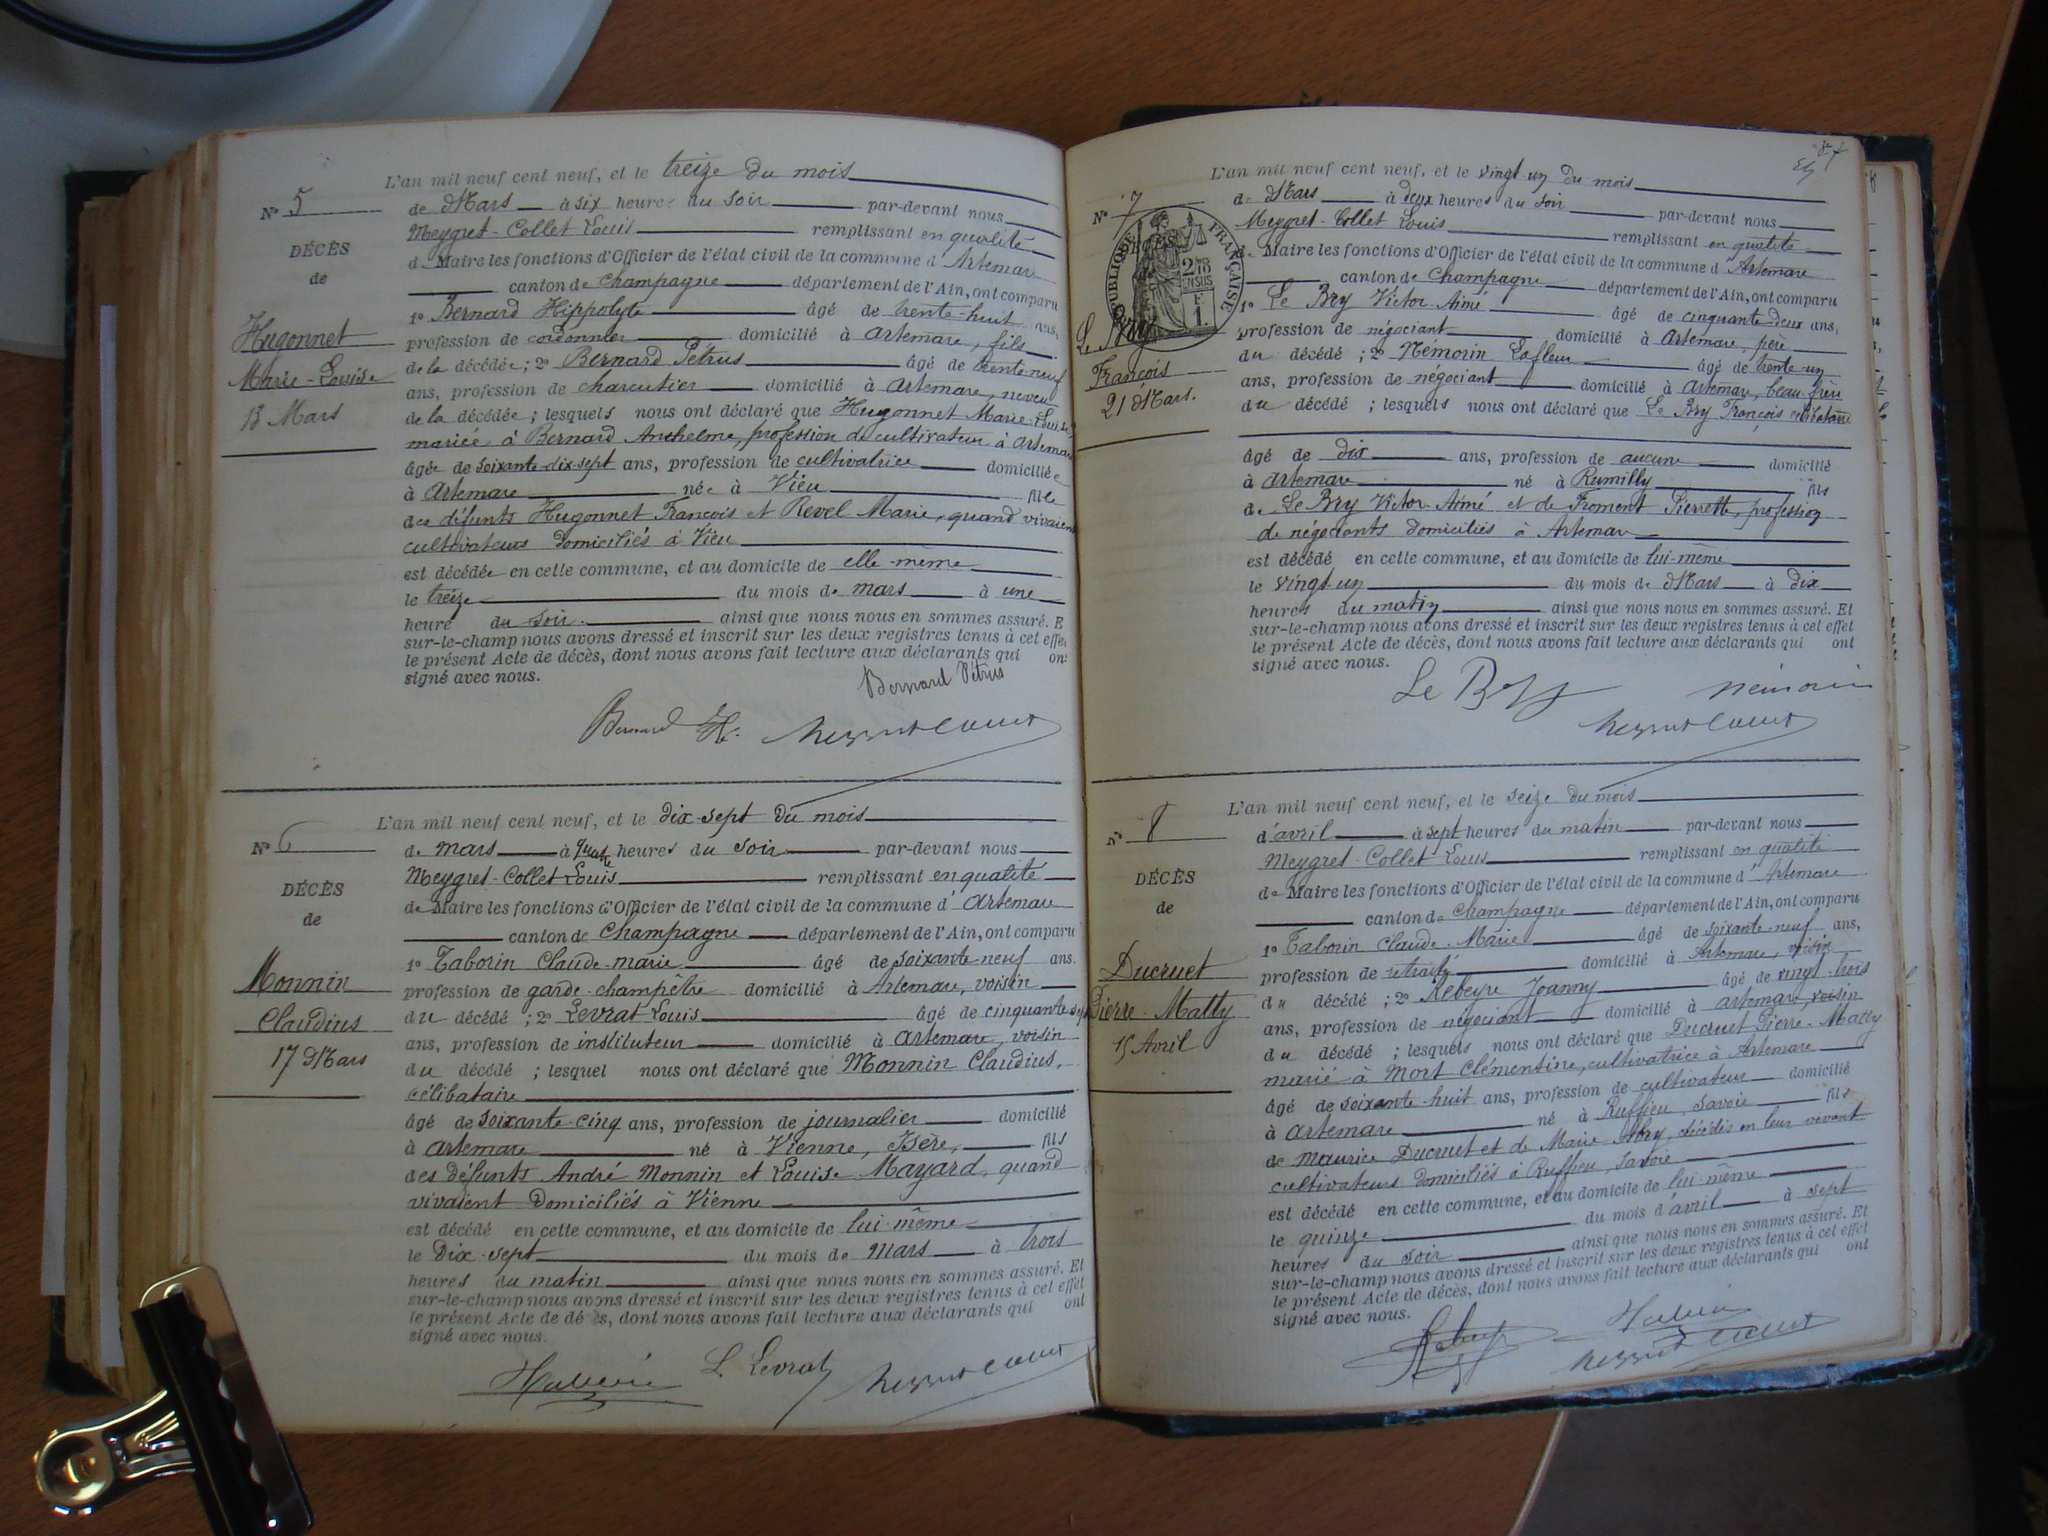 L'an mil neuf cent neuf, et le treize du mois
N° 5
de Mars à six heures du soir par-devant nous
Meygret-Collet Louis remplissant en qualité
DÉCÈS
de Maire les fonctions d'Officier de l'état civil de la commune d'Artemare
de
canton de Champagne département de l'Ain, ont comparu
1° Bernard Hippolyte âgé de trente-huit ans,
Hugonnet
profession de cordonnier domicilié à Artemare, fils
Marie-Louise
de la décédée; 2° Bernard Pétrus âgé de trente-neuf
13 Mars
ans, profession de charcutier domicilié à Artemare, neveu
de la décédée; lesquels nous ont déclaré que Hugonnet Marie-Louise,
mariée à Bernard Anthelme, profession de cultivateur à Artemare
âgée de soixante-dix-sept ans, profession de cultivatrice domiciliée
à Artemare née à Vieu fille
des défunts Hugonnet François et Revel Marie, quand vivaient
cultivateurs domiciliés à Vieu
est décédée en cette commune, et au domicile de elle-même
le treize du mois de mars à une
heure du soir. ainsi que nous nous en sommes assuré. E
sur-le-champ nous avons dressé et inscrit sur les deux registres tenus à cet effet
le présent Acte de décès, dont nous avons fait lecture aux déclarants qui ont
signé avec nous.
Bernard Pétrus
Bernard H.
L'an mil neuf cent neuf, et le dix-sept du mois
N° 6
de mars à quatre heures du soir par-devant nous
Meygret-Collet Louis remplissant en qualité
DÉCÈS
de Maire les fonctions d'Officier de l'état civil de la commune d'Artemare
de
canton de Champagne département de l'Ain, ont comparu
1° Taborin Claude-marie âgé de soixante-neuf ans.
Monnin
profession de garde-champêtre domicilié à Artemare, voisin
Claudius
du décédé; 2° Levrat Louis âgé de cinquante-sept
17 Mars
ans, profession de instituteur domicilié à Artemare, voisin
du décédé; lesquel nous ont déclaré que Monnin Claudius,
célibataire
âgé de soixante-cinq ans, profession de journalier domicilié
à Artemare né à Vienne, Isère, fils
des défunts André Monnin et Louise Mayard, quand
vivaient domiciliés à Vienne
est décédé en cette commune, et au domicile de lui-même
le Dix-sept du mois de mars à trois
heures du matin ainsi que nous nous en sommes assuré. Et
sur-le-champ nous avons dressé et inscrit sur les deux registres tenus à cet effet
le présent Acte de décès, dont nous avons fait lecture aux déclarants qui ont
signé avec nous.
L. Levrat
L'an mil neuf cent neuf, et le vingt-un du mois
N° 7
de Mars à deux heures du soir par-devant nous
Meygret-Collet Louis remplissant en qualité
RÉPUBLIQUE FRANÇAISE
de Maire les fonctions d'Officier de l'état civil de la commune d'Artemare
canton de Champagne département de l'Ain, ont comparu
1° Le Bry Victor-Aimé âgé de cinquante-deux ans,
Le Bry
profession de négociant domicilié à Artemare, père
François
du décédé; 2° Némorin Lafleur âgé de trente-un
21 Mars.
ans, profession de négociant domicilié à Artemare, beau-frère
du décédé; lesquels nous ont déclaré que Le Bry François célibataire
âgé de dix ans, profession de aucune domicilié
à Artemare né à Rumilly fils
de Le Bry Victor-Aimé et de Froment Pierrette, profession
de négociants domiciliés à Artemare
est décédé en cette commune, et au domicile de lui-même
le vingt-un du mois de Mars à dix
heures du matin ainsi que nous nous en sommes assuré. Et
sur-le-champ nous avons dressé et inscrit sur les deux registres tenus à cet effet
le présent Acte de décès, dont nous avons fait lecture aux déclarants qui ont
signé avec nous.
Le Bry Némorin
L'an mil neuf cent neuf, et le seize du mois
N° 8
d'avril à sept heures du matin par-devant nous
Meygret-Collet Louis remplissant en qualité
DÉCÈS
de Maire les fonctions d'Officier de l'état civil de la commune d'Artemare
de
canton de Champagne département de l'Ain, ont comparu
1° Taborin Claude-Marie âgé de soixante-neuf ans,
Ducruet
profession de retraité domicilié à Artemare, voisin
Pierre-Matty
du décédé; 2° Rebeyre Joanny âgé de vingt-trois
15 Avril
ans, profession de négociant domicilié à Artemare, voisin
du décédé; lesquels nous ont déclaré que Ducruet Pierre-Matty
marié à Mort Clémentine, cultivatrice à Artemare
âgé de soixante-huit ans, profession de cultivateur domicilié
à Artemare né à Ruffieu, Savoie fils
de Maurice Ducruet et de Marie Abry, décédés en leur vivant
cultivateurs domiciliés à Ruffieu, Savoie
est décédé en cette commune, et au domicile de lui-même
le quinze du mois d'avril à sept
heures du soir ainsi que nous nous en sommes assuré. Et
sur-le-champ nous avons dressé et inscrit sur les deux registres tenus à cet effet
le présent Acte de décès, dont nous avons fait lecture aux déclarants qui ont
signé avec nous.